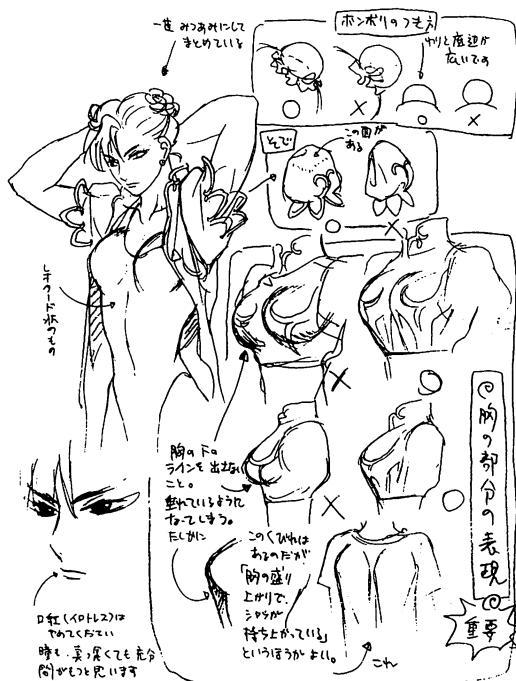 一度 みつあみにして
まとめている
ボンボリのつきえ
わりと底辺が
広いです
○
×
○
×
そで
この面が
ある
○
×
レオタード状のもの
×
○
胸の下の
ラインを出さない
こと。
垂れているように
なってしまう。
たしかに
×
○
このくびれは
あるのだが
「胸の盛り
上がりで、
シャツが
持ち上がっている」
というほうがよい。
これ
胸の部分の表現
重要
口紅(イロトレス)は
やめてください
瞳も、真っ黒くても充分
間がもつと思います